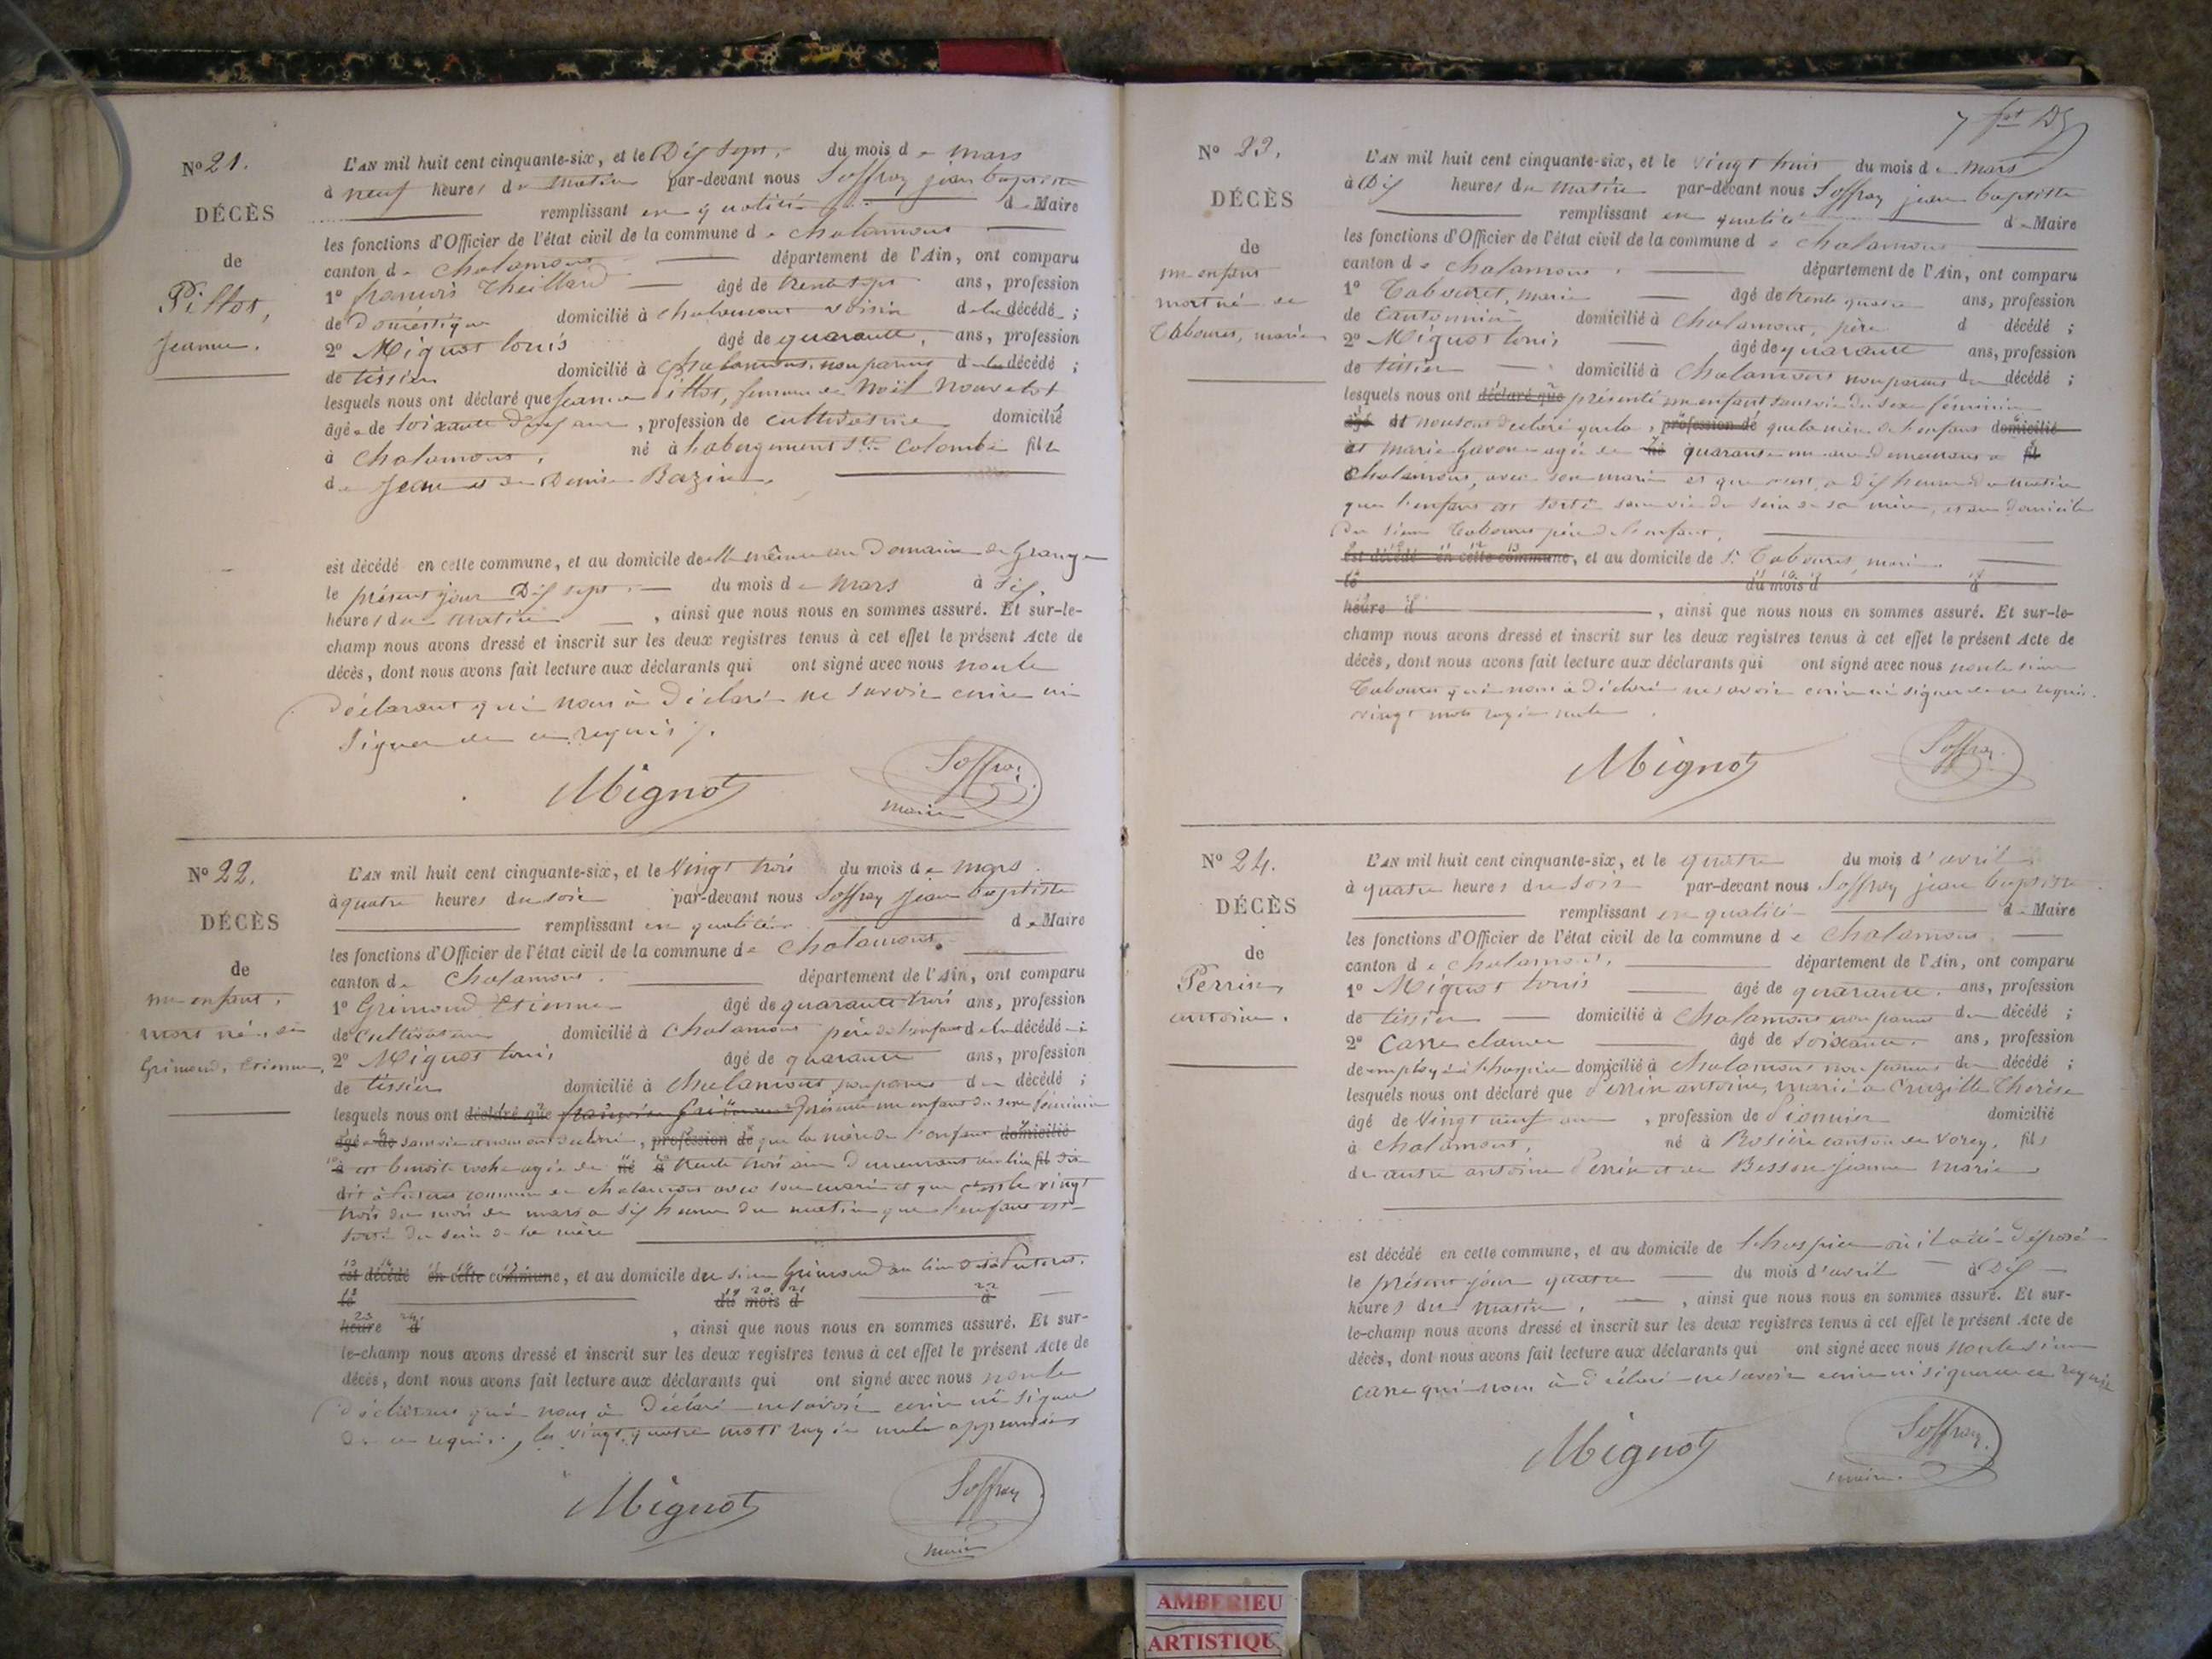 No 21.
DÉCÈS
de
Pillot,
Jeanne.
L'AN mil huit cent cinquante-six, et le Dix sept, du mois de mars
à neuf heures du matin par-devant nous Soffray jean baptiste
remplissant en qualité de Maire
les fonctions d'Officier de l'état civil de la commune de chalamont
canton de chalamont département de l'Ain, ont comparu
1º françois Theillard âgé de trente sept ans, profession
de Domestique domicilié à chalamont voisin de la décédée ;
2º Mignot louis âgé de quarante, ans, profession
de tissier domicilié à chalamont, non parent de la décédé ;
lesquels nous ont déclaré que Jeanne Pillot, femme de Noël Nouvelot
âgée de soixante deux ans, profession de cultivatrice domicilié
à Chalamont, né à labergement Ste Colombe fille
de Jean et de Denise Bazin.
est décédé en cette commune, et au domicile de elle même au Domaine de Grange
le présent jour Dix sept du mois de Mars à six,
heures du matin, ainsi que nous nous en sommes assuré. Et sur-le-
champ nous avons dressé et inscrit sur les deux registres tenus à cet effet le présent Acte de
décès, dont nous avons fait lecture aux déclarants qui ont signé avec nous non le
déclarant qui nous à Déclaré ne savoir écrire ni
signer de ce requis /.
Mignot Soffray
maire
No 22.
DÉCÈS
de
un enfant,
mort né, de
Grimond, Etienne,
L'AN mil huit cent cinquante-six, et le Vingt trois du mois de mars
à quatre heures du soir par-devant nous Soffray Jean baptiste
remplissant en qualité de Maire
les fonctions d'Officier de l'état civil de la commune de chalamont.
canton de Chalamont. département de l'Ain, ont comparu
1º Grimond Etienne âgé de quarante trois ans, profession
de cultivateur domicilié à Chalamont père de l'enfant de la décédé ;
2º Mignot louis âgé de quarante ans, profession
de tissier domicilié à Chalamont non parent du décédé ;
lesquels nous ont déclaré que présenté un enfant du sexe féminin
âgé de sans vie et nous ont déclaré, profession de que la mère de l'enfant domicilié
à est benoite âgée de né à trente trois ans Demeurant au lieu fil
dit à commune de chalamont avec son mari et que vingt
trois du mois de mars a six heures du matin que l'enfant est
sorti du sein de sa mère
est décédé en cette commune, et au domicile du sieur Grimond au lieu dit
le du mois d à
heure d , ainsi que nous nous en sommes assuré. Et sur-
le-champ nous avons dressé et inscrit sur les deux registres tenus à cet effet le présent Acte de
décès, dont nous avons fait lecture aux déclarants qui ont signé avec nous non le
déclarant qui nous à Déclaré ne savoir écrire ni signer
de ce requis, les vingt quatre mots rayés nuls approuvés
Mignot Soffray
maire
No 23.
DÉCÈS
de
un enfant
mort né de
Tabouret, marie
L'AN mil huit cent cinquante-six, et le vingt huit du mois de mars
à Dix heures du matin par-devant nous Soffray jean baptiste
remplissant en qualité de Maire
les fonctions d'Officier de l'état civil de la commune de chalamont
canton de chalamont. département de l'Ain, ont comparu
1º Tabouret, marie âgé de trente quatre ans, profession
de Cantonnier domicilié à Chalamont, père d décédé ;
2º Mignot louis âgé de quarante ans, profession
de tissier domicilié à Chalamont non parent du décédé ;
lesquels nous ont déclaré que présenté un enfant sans vie du sexe féminin
âgé et nous ont déclaré que la, profession de que la mère de l'enfant domicilié
est marie âgée de né quarante un ans demeurant à fil
Chalamont, avec son mari et que c'est, a Dix heures du matin
que l'enfant est sorti sans vie du sein de sa mère, et au domicile
du sieur Tabouret père de l'enfant,
est décédé en cette commune, et au domicile de Sr Tabouret, marie
le du mois d à
heure d , ainsi que nous nous en sommes assuré. Et sur-le-
champ nous avons dressé et inscrit sur les deux registres tenus à cet effet le présent Acte de
décès, dont nous avons fait lecture aux déclarants qui ont signé avec nous non le sieur
Tabouret qui nous à déclaré ne savoir écrire ni signer de ce requis.
vingt mots rayés nuls.
Mignot Soffray
No 24.
DÉCÈS
de
Perrin,
antoine.
L'AN mil huit cent cinquante-six, et le quatre du mois d'avril
à quatre heures du soir par-devant nous Soffray jean baptiste
remplissant en qualité de Maire
les fonctions d'Officier de l'état civil de la commune de Chalamont.
canton de chalamont, département de l'Ain, ont comparu
1º Mignot louis âgé de quarante. ans, profession
de tissier domicilié à Chalamont non parent du décédé ;
2º Carre claude âgé de soixante. ans, profession
de employé à l'hospice domicilié à Chalamont non parent du décédé ;
lesquels nous ont déclaré que Perrin antoine, marié à Cruzille Thérèse
âgé de Vingt neuf ans, profession de Pionnier domicilié
à chalamont, né à Rosière canton de Vorey, fils
de autre antoine Perrin et de Besson Jeanne Marie
est décédé en cette commune, et au domicile de l'hospice où il a été déposé
le présent jour quatre du mois d'avril à Dix
heures du matin, ainsi que nous nous en sommes assuré. Et sur-
le-champ nous avons dressé et inscrit sur les deux registres tenus à cet effet le présent Acte de
décès, dont nous avons fait lecture aux déclarants qui ont signé avec nous non le sieur
Carre qui nous à déclaré ne savoir écrire ni signer de ce requis
Mignot Soffray
maire
AMBERIEU
ARTISTIQU